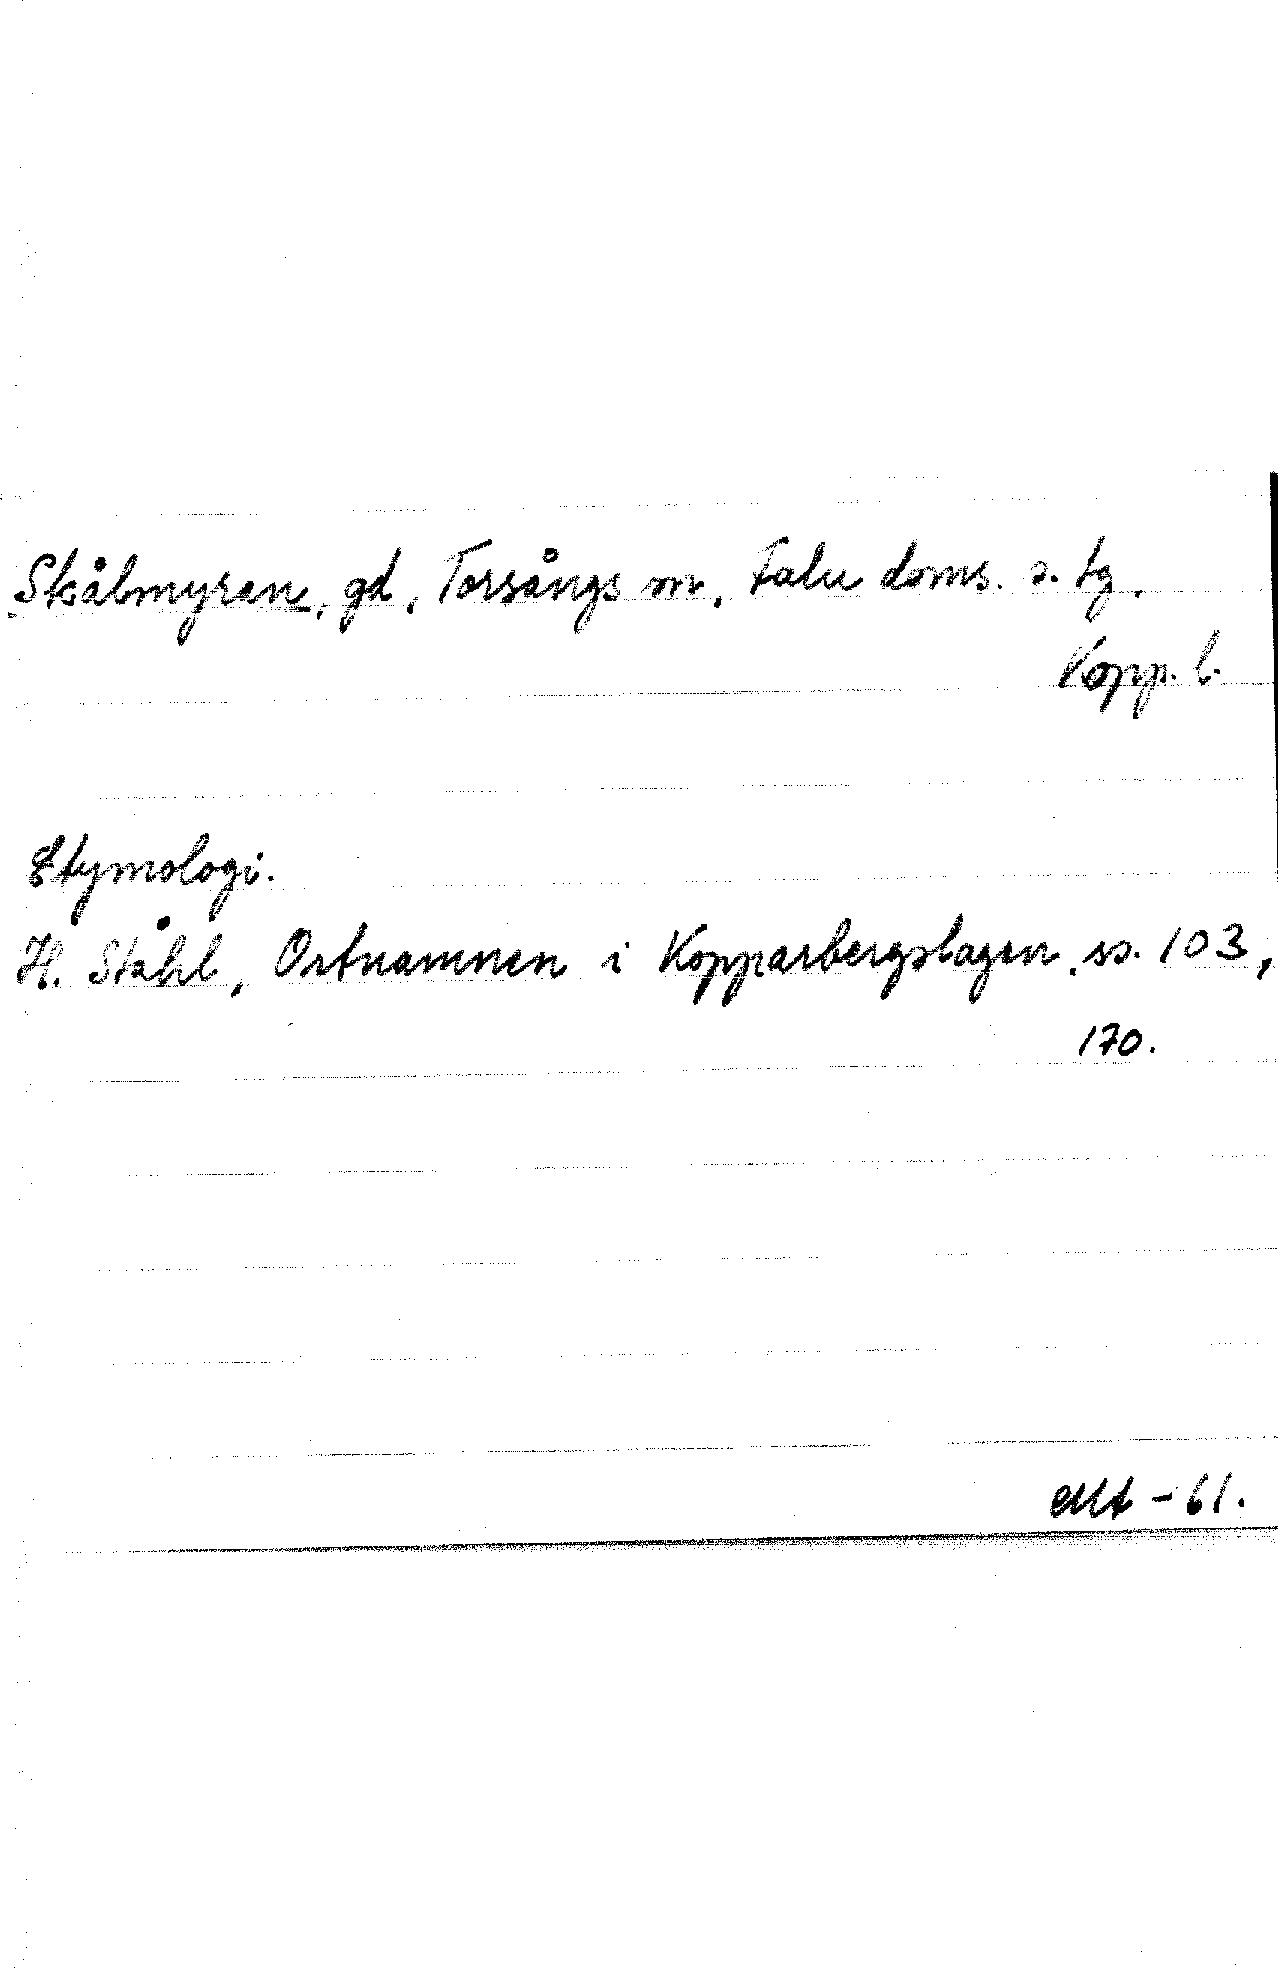 Skålmyren, gd, Torsångs sn, Falu doms. s. tg.
Kopp. l.
Etymologi.
H. Ståhl, Ortnamnen i Kopparbergslagen, ss. 103,
170.
-61.